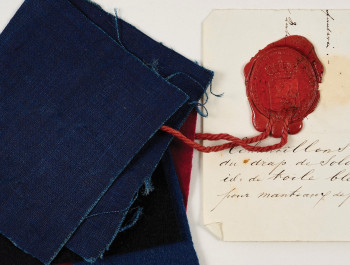 Echantillons
du drap de Sold
id: de toile ble
pour manteaux de p